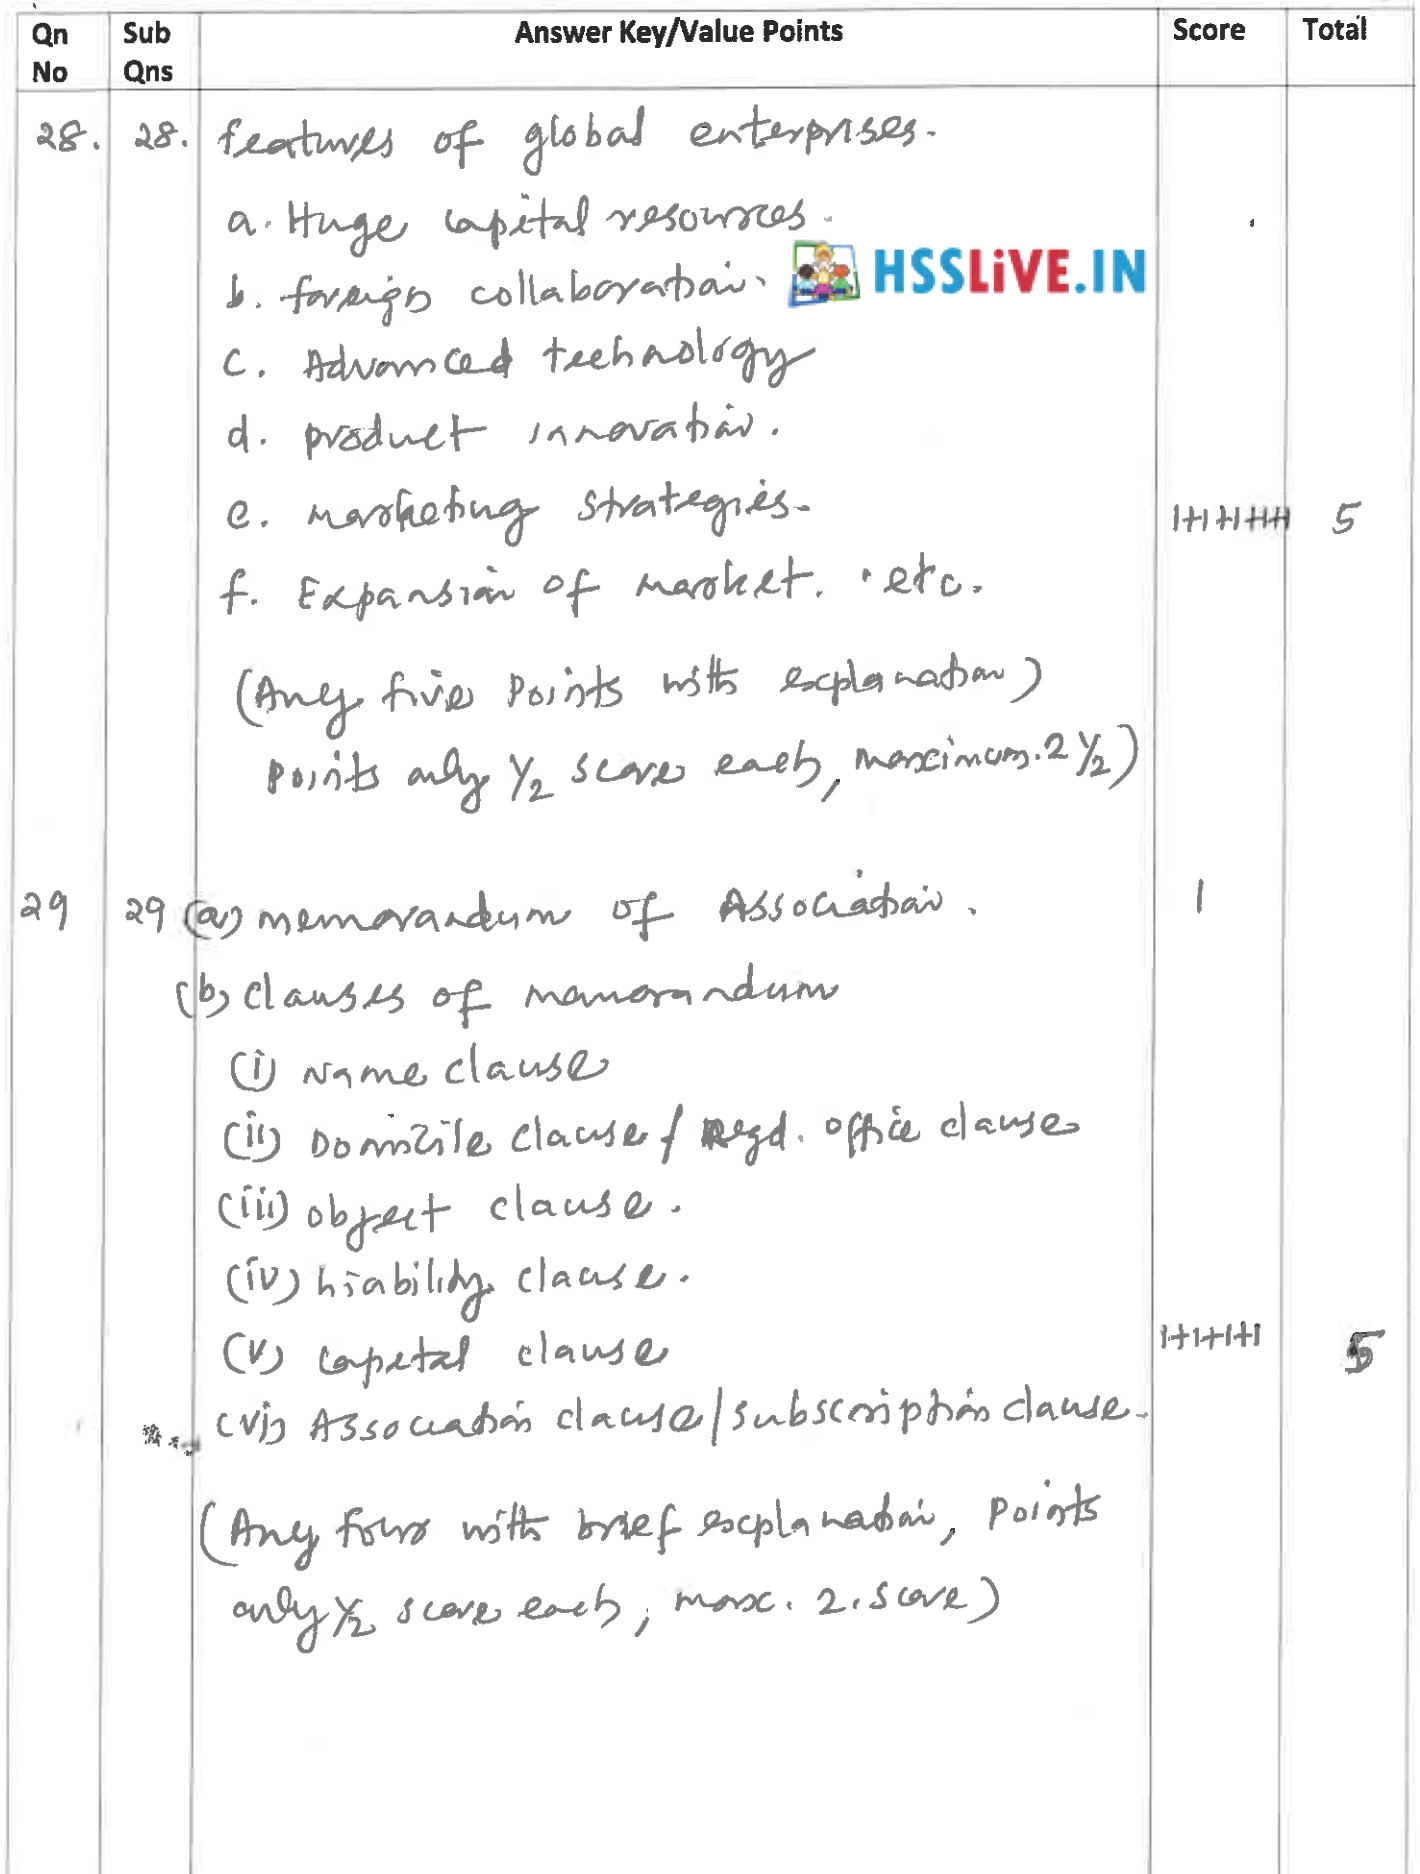 Qn No Sub Qns Answer Key/Value Points Score Total
28. 28. features of global enterprises.
a. Huge capital resources.
b. foreign collaboration.
HSSLiVE.IN
c. Advanced technology
d. product innovation.
e. marketing strategies. 1+1+1+1+1 5
f. Expansion of market. etc.
(Any five points with explanation)
points only 1/2 score each, maximum. 2 1/2)
29 29 (a) memorandum of Association. 1
(b) clauses of memorandum
(i) Name clause
(ii) Domicile clause / Regd. office clause
(iii) object clause.
(iv) Liability clause.
(v) capital clause 1+1+1+1 5
(vi) Association clause/subscription clause.
(Any four with brief explanation, points
only 1/2 score each, max. 2. score)